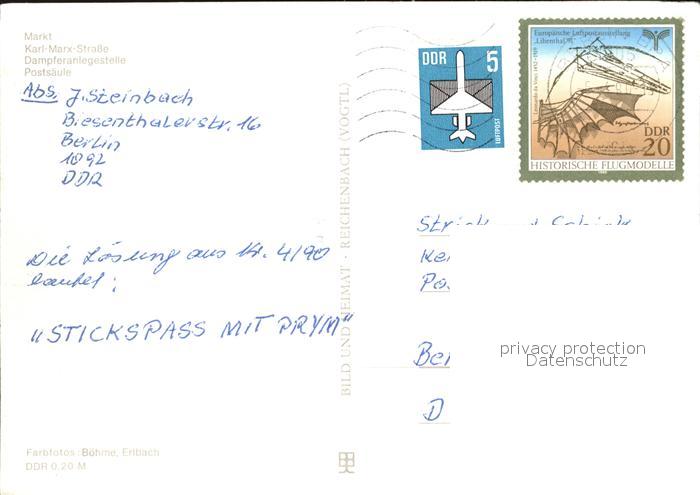 Markt
Karl-Marx-Straße
Dampferanlegestelle
Postsäule
Abs. J. Steinbach
Biesenthalerstr. 16
Berlin
1892
DDR
Die Lösung aus Nr. 4/90
lautet:
„STICKSPASS MIT PRYM“
Farbfotos: Böhme, Erlbach
DDR 0,20 M
BILD UND HEIMAT · REICHENBACH (VOGTL)
DDR 5
LUFTPOST
Europäische Luftpostausstellung
„Lilienthal '91“
Leonardo da Vinci 1452-1519
DDR
20
HISTORISCHE FLUGMODELLE
Ber
D
privacy protection
Datenschutz